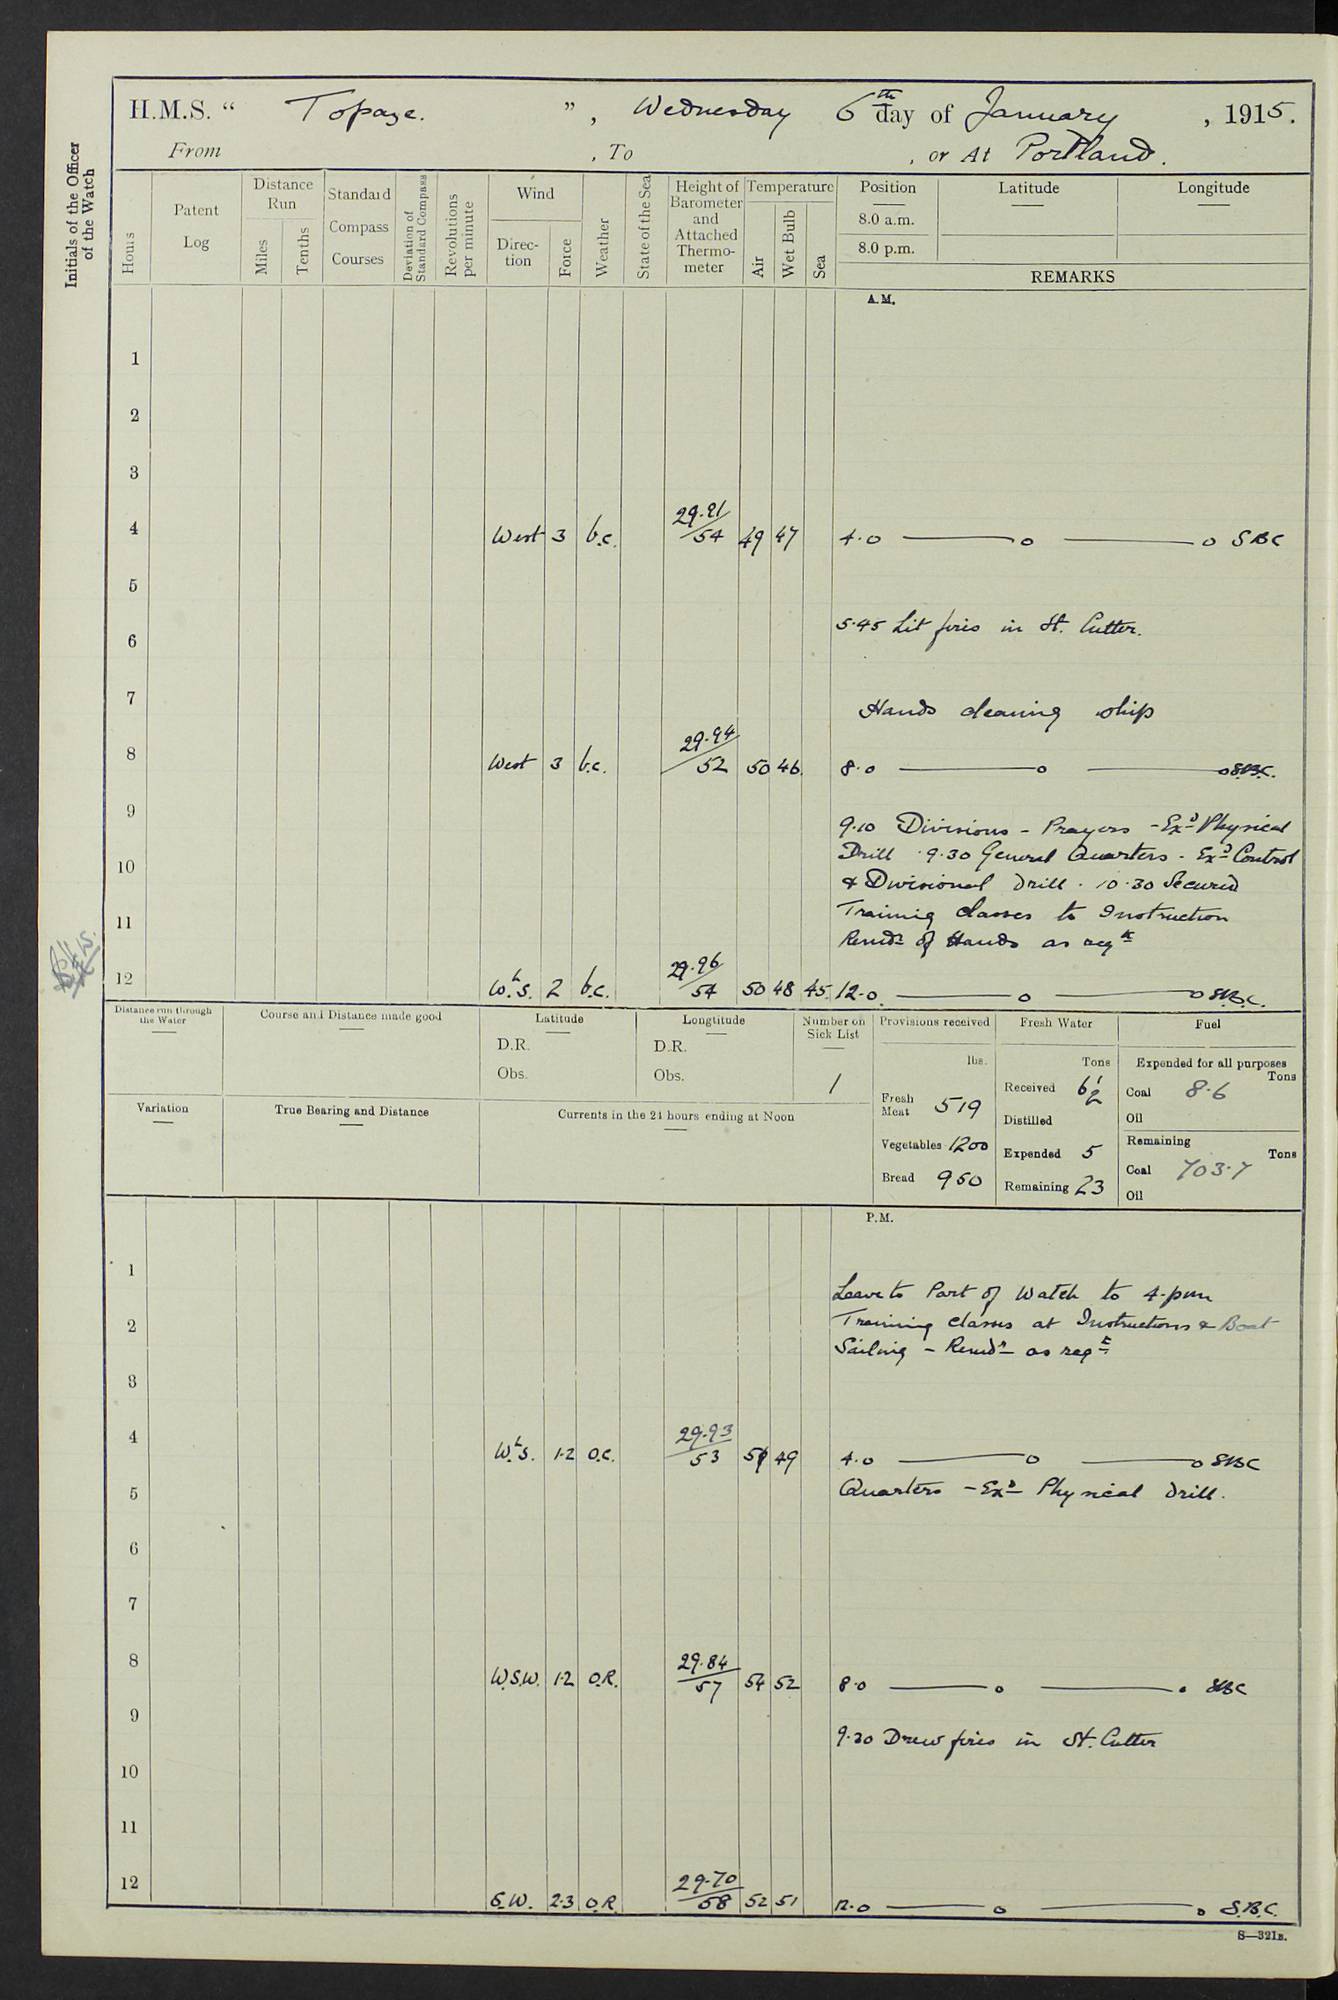 H.M.S. " Topaze. ", Wednesday 6th day of January, 1915.
From , To , or At Portland.
Initials of the Officer of the Watch
Hours
Patent Log
Distance Run
Miles
Tenths
Standard Compass Courses
Deviation of Standard Compass
Revolutions per minute
Wind
Direc-tion
Force
Weather
State of the Sea
Height of Barometer and Attached Thermo-meter
Temperature
Air
Wet Bulb
Sea
Position Latitude Longitude
8.0 a.m.
8.0 p.m.
REMARKS
A.M.
1
2
3
4 West 3 b.c. 29.91/54 49 47 4.0 —— o —— o SBC
5
5.45 Lit fires in St. Cutter.
6
7
Hands cleaning ship
8 West 3 b.c. 29.94/52 50 46 8.0 —— o —— o S.B.C.
9
9.10 Divisions - Prayers - Exd Physical
Drill . 9.30 General Quarters . Exd Control
10
& Divisional Drill . 10.30 Secured
Training classes to Instruction
11
Remdr of Hands as reqte
12 W.b.S. 2 b.c. 29.96/54 50 48 45. 12.0. —— o —— o S.B.C.
Distance run through the Water
Course and Distance made good
Latitude
D.R.
Obs.
Longtitude
D.R.
Obs.
Number on Sick List
1
Provisions received
lbs.
Fresh Meat 519
Vegetables 1200
Bread 950
Fresh Water
Tons
Received 6½
Distilled
Expended 5
Remaining 23
Fuel
Expended for all purposes
Tons
Coal 8.6
Oil
Remaining
Tons
Coal 703.7
Oil
Variation
True Bearing and Distance
Currents in the 24 hours ending at Noon
P.M.
1
Leave to Part of Watch to 4.pm
2 Training classes at Instructions & Boat
Sailing - Remdr as reqte
3
4 W.b.S. 1.2 O.C. 29.93/53 51 49 4.0 —— o —— o SBC
5 Quarters - Exd Physical Drill.
6
7
8 W.S.W. 1.2 O.R. 29.84/57 54 52 8.0 —— o —— o SBC
9
9.30 Drew fires in St. Cutter
10
11
12 S.W. 2.3 O.R. 29.70/58 52 51 12.0 —— o —— o S.B.C.
S—321B.